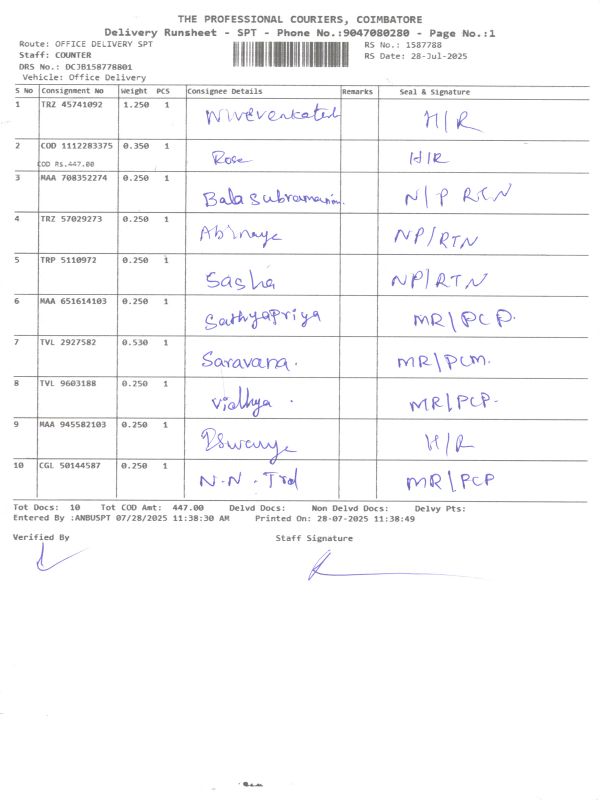 THE PROFESSIONAL COURIERS, COIMBATORE
Delivery Runsheet - SPT - Phone No.:9047080280 - Page No.:1
Route: OFFICE DELIVERY SPT RS No.: 1587788
Staff: COUNTER RS Date: 28-Jul-2025
DRS No.: DCJB158778801
Vehicle: Office Delivery
S No Consignment No Weight PCS Consignee Details Remarks Seal & Signature
1 TRZ 45741092 1.250 1 H/R
2 COD 1112283375 0.350 1 Rose H/R
COD Rs.447.00
3 MAA 708352274 0.250 1 Balasubramanian. N/P RTN
4 TRZ 57029273 0.250 1 Abinaya NP/RTN
5 TRP 5110972 0.250 1 Sasha NP/RTN
6 MAA 651614103 0.250 1 Sathyapriya MR/PCP.
7 TVL 2927582 0.530 1 Saravana. MR/PCM.
8 TVL 9603188 0.250 1 Vidhya. MR/PCP-
9 MAA 945582103 0.250 1 H/R
10 CGL 50144587 0.250 1 N.N. Trd MR/PCP
Tot Docs: 10 Tot COD Amt: 447.00 Delvd Docs: Non Delvd Docs: Delvy Pts:
Entered By :ANBUSPT 07/28/2025 11:38:30 AM Printed On: 28-07-2025 11:38:49
Verified By Staff Signature